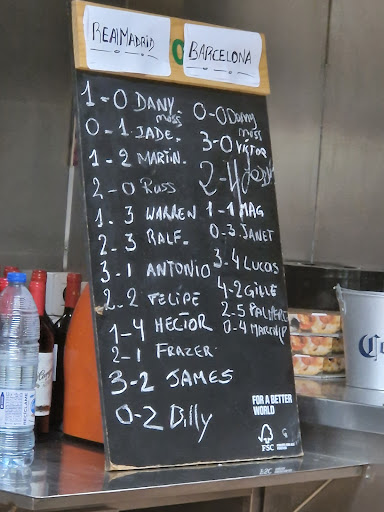 REAL MADRID
BARCELONA
1-0 DANY moss
0-1 JADE.
1-2 MARTIN.
2-0 Russ
1-3 WARREN
2-3 RALF
3-1 ANTONIO
2-2 FELIPE
1-4 HECTOR
2-1 FRAZER
3-2 JAMES
0-2 Billy
0-0 Danny moss
3-0 VIKTOR
2-4
1-1 MAG
0-3 JANET
3-4 LUCAS
4-2 GILLE
2-5
0-4
FOR A BETTER
WORLD
FSC